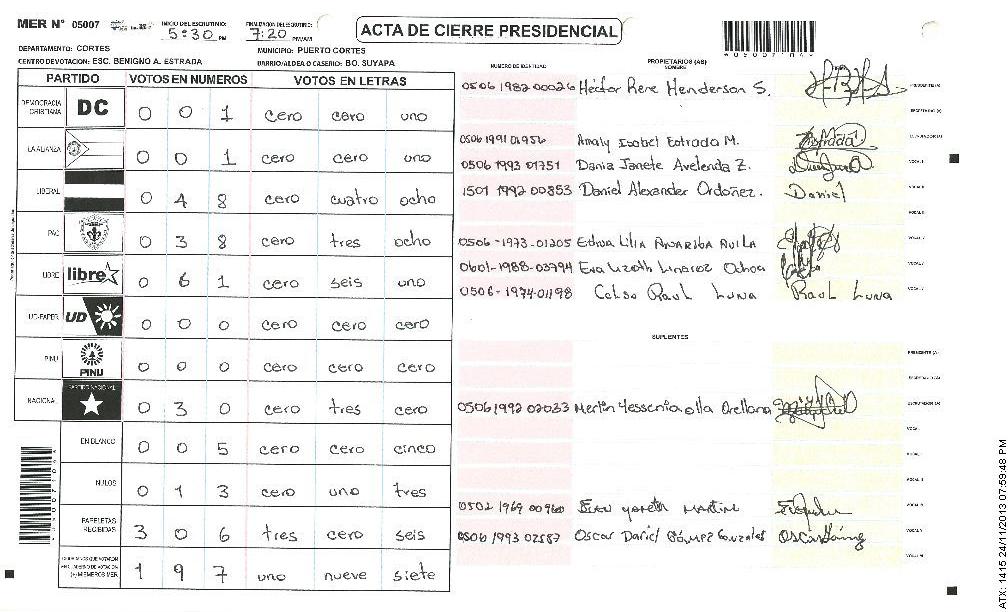 MER N° 05007 INICIO DEL ESCRUTINIO: 5:30 PM FINALIZACION ESCRUTINIO: 7:20 PM/AM
ACTA DE CIERRE PRESIDENCIAL
DEPARTAMENTO: CORTES MUNICIPIO: PUERTO CORTES
CENTRO DE VOTACION: ESC. BENIGNO A. ESTRADA BARRIO/ALDEA O CASERIO: BO. SUYAPA
PARTIDO VOTOS EN NUMEROS VOTOS EN LETRAS
DEMOCRACIA CRISTIANA DC 0 0 1 cero cero uno
LA ALIANZA 0 0 1 cero cero uno
LIBERAL 0 4 8 cero cuatro ocho
PAC 0 3 8 cero tres ocho
LIBRE libre 0 6 1 cero seis uno
UD-FAPER UD 0 0 0 cero cero cero
PINU PINU 0 0 0 cero cero cero
NACIONAL PARTIDO NACIONAL 0 3 0 cero tres cero
EN BLANCO 0 0 5 cero cero cinco
NULOS 0 1 3 cero uno tres
PAPELETAS RECIBIDAS 3 0 6 tres cero seis
(+) MIEMBROS MER 1 9 7 uno nueve siete
NUMERO DE IDENTIDAD PROPIETARIOS (AS) NOMBRE
0506 1982 00026 Héctor Rene Henderson S. PRESIDENTE (A)
SECRETARIO (A)
0506 1991 01956 Analy Isobel Estrada M. ESCRUTADOR (A)
0506 1993 01751 Dania Janete Avelenda Z. VOCAL I
1501 1992 00853 Daniel Alexander Ordoñez. Daniel
0506-1973-01205 Edwa Lilia Anariba Avila
0601-1988-03794 Eva Lizeth Linarez Ochoa
0506-1974-01198 Celso Raul Luna Raul Luna
SUPLENTES
PRESIDENTE (A)
SECRETARIO (A)
0506 1992 02033 Merlin Yessenia olla Orellana ESCRUTADOR (A)
0502 1969 00960
0506 1993 02587 Oscar Dariel Gómez Gonzales
ATX: 1415 24/11/2013 07:59:48 PM